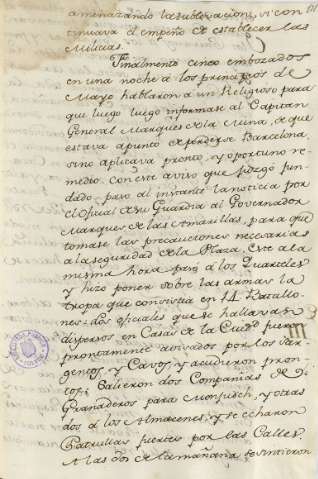 amenazando la sublevacion, si con
tinuava el empeño de establecer las
Milicias.
Finalmente cinco embozados
en una noche a los principios de
Mayo hablaron a un Religioso para
que luego luego informase al Capitan
General Marques de la Mina, de que
estava apunto de perderse Barcelona
sino aplicava pronto, y oportuno re
medio. Con este aviso que juzgó fun
dado, pasó al instante la noticia por
el oficial de su Guardia al Governador
Marques de las Amarillas, para que
tomase las precauciones necesarias
a la seguridad de la Plaza. Este a la
misma hora pasó a los Quarteles
y hizo poner sobre las armas la
tropa que consistia en 14 Batallo
nes: dos oficiales que se hallavan
dispersos en Casas de la Ciud.d fueron
prontamente avisados por los Sar-
gentos, y Cavos, y acudieron pron
tos; Salieron dos Compañias de
Granaderos para Monjuich, y otras
dos a los Almacenes; y se echaron
Patrullas fuertes por las Calles.
A las dos de la mañana se sintieron